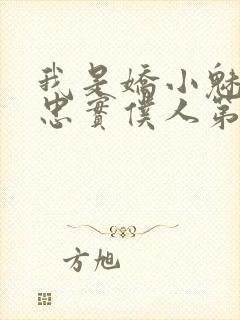 我是嬌小魅
忠實僕人第
方旭